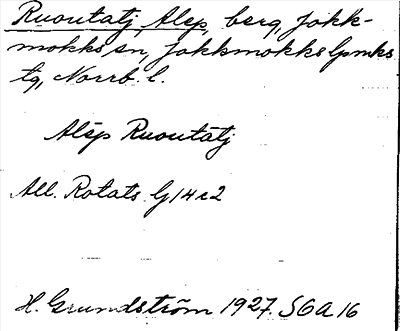 Ruoutatj, Alep, berg, Jokk-
mokks sn, Jokkmokks lpmks
tg, Norrb. l.
Alēp Ruoutātj
All. Rotats G 14 c 2
H. Grundström 1927. SOA 16